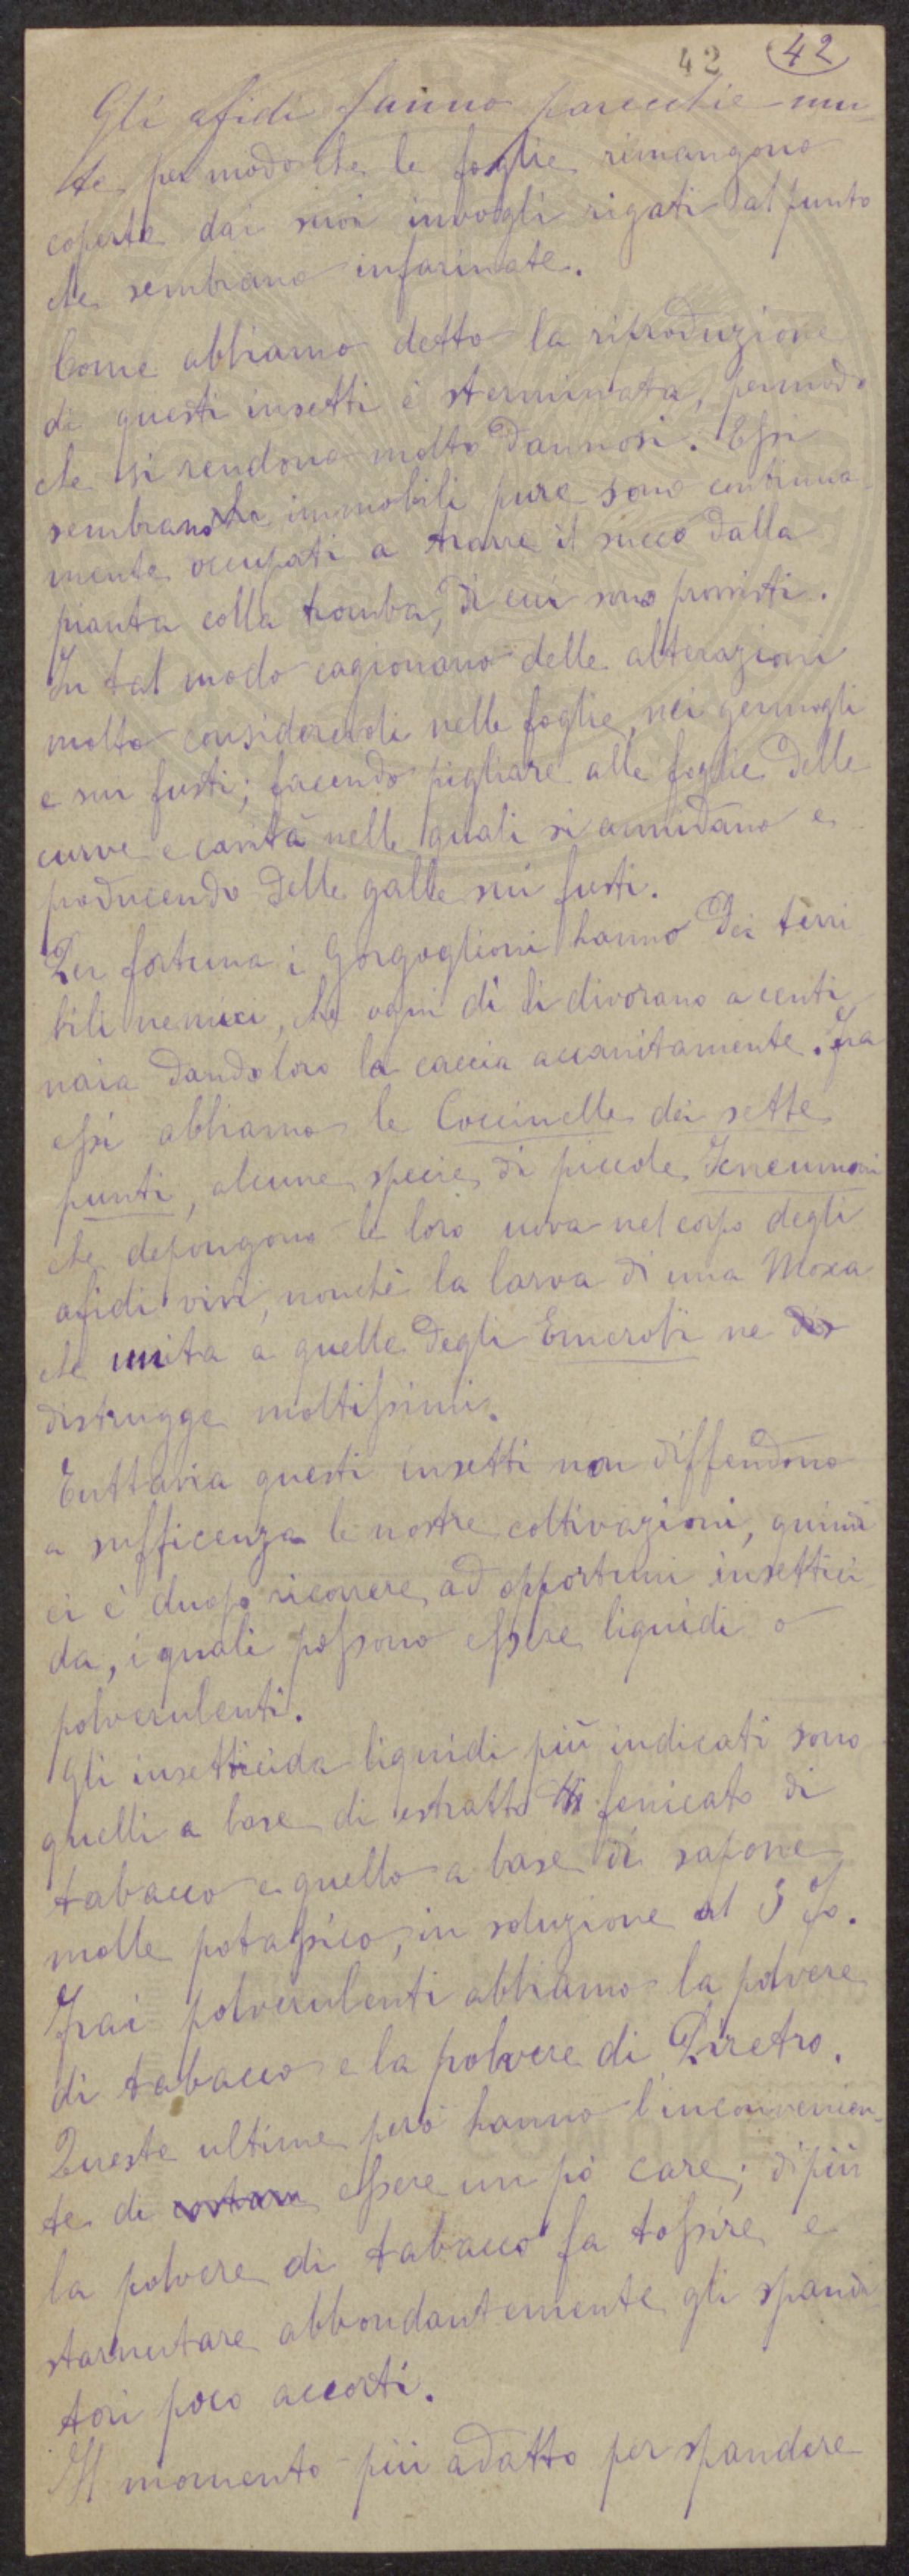 42 42
Gli afidi fanno parecchie mu-
te per modo che le foglie rimangono
coperte dai suoi invogli rigati al punto
che sembrano infarinate.
Come abbiamo detto la riproduzione
di questi insetti è sterminata, permodo
che si rendono molto dannosi. Essi
sembrano immobili pure sono continua-
mente occupati a trarre il succo dalla
pianta colla tromba, di cui sono provvisti.
In tal modo cagionano delle alterazioni
molto considerevoli nelle foglie, nei germogli
e sui fusti; facendo pigliare alle foglie delle
curve e cavità nelle quali si annidano e
producendo delle galle sui fusti.
Per fortuna i Gorgoglioni hanno dei terri
bili nemici, che ogni dì li divorano a centi
naia dando loro la caccia accanitamente. Fra
essi abbiamo le Coccinelle dei sette
punti, alcune specie di piccole Icneumoni
che depongono le loro uova nel corpo degli
afidi vivi, nonchè la larva di una Moxa
che unita a quelle degli Emerobi ne
distrugge moltissimi.
Tuttavia questi insetti non diffendono
a sufficenza le nostre coltivazioni, quindi
ci è duopo ricorrere ad opportuni insettici-
da, i quali possono essere liquidi o
polverulenti.
Gli insetticida liquidi più indicati sono
quelli a base di estratto fenicato di
tabacco e quello a base di sapone
molle potassico, in soluzione al 3 %.
Frai polverulenti abbiamo la polvere
di tabacco e la polvere di Piretro.
Queste ultime però hanno l'inconvenien-
te di essere un pò care; di più
la polvere di tabacco fa tossire e
starnutare abbondantemente gli spandi
tori poco accorti.
Il momento più adatto per spandere